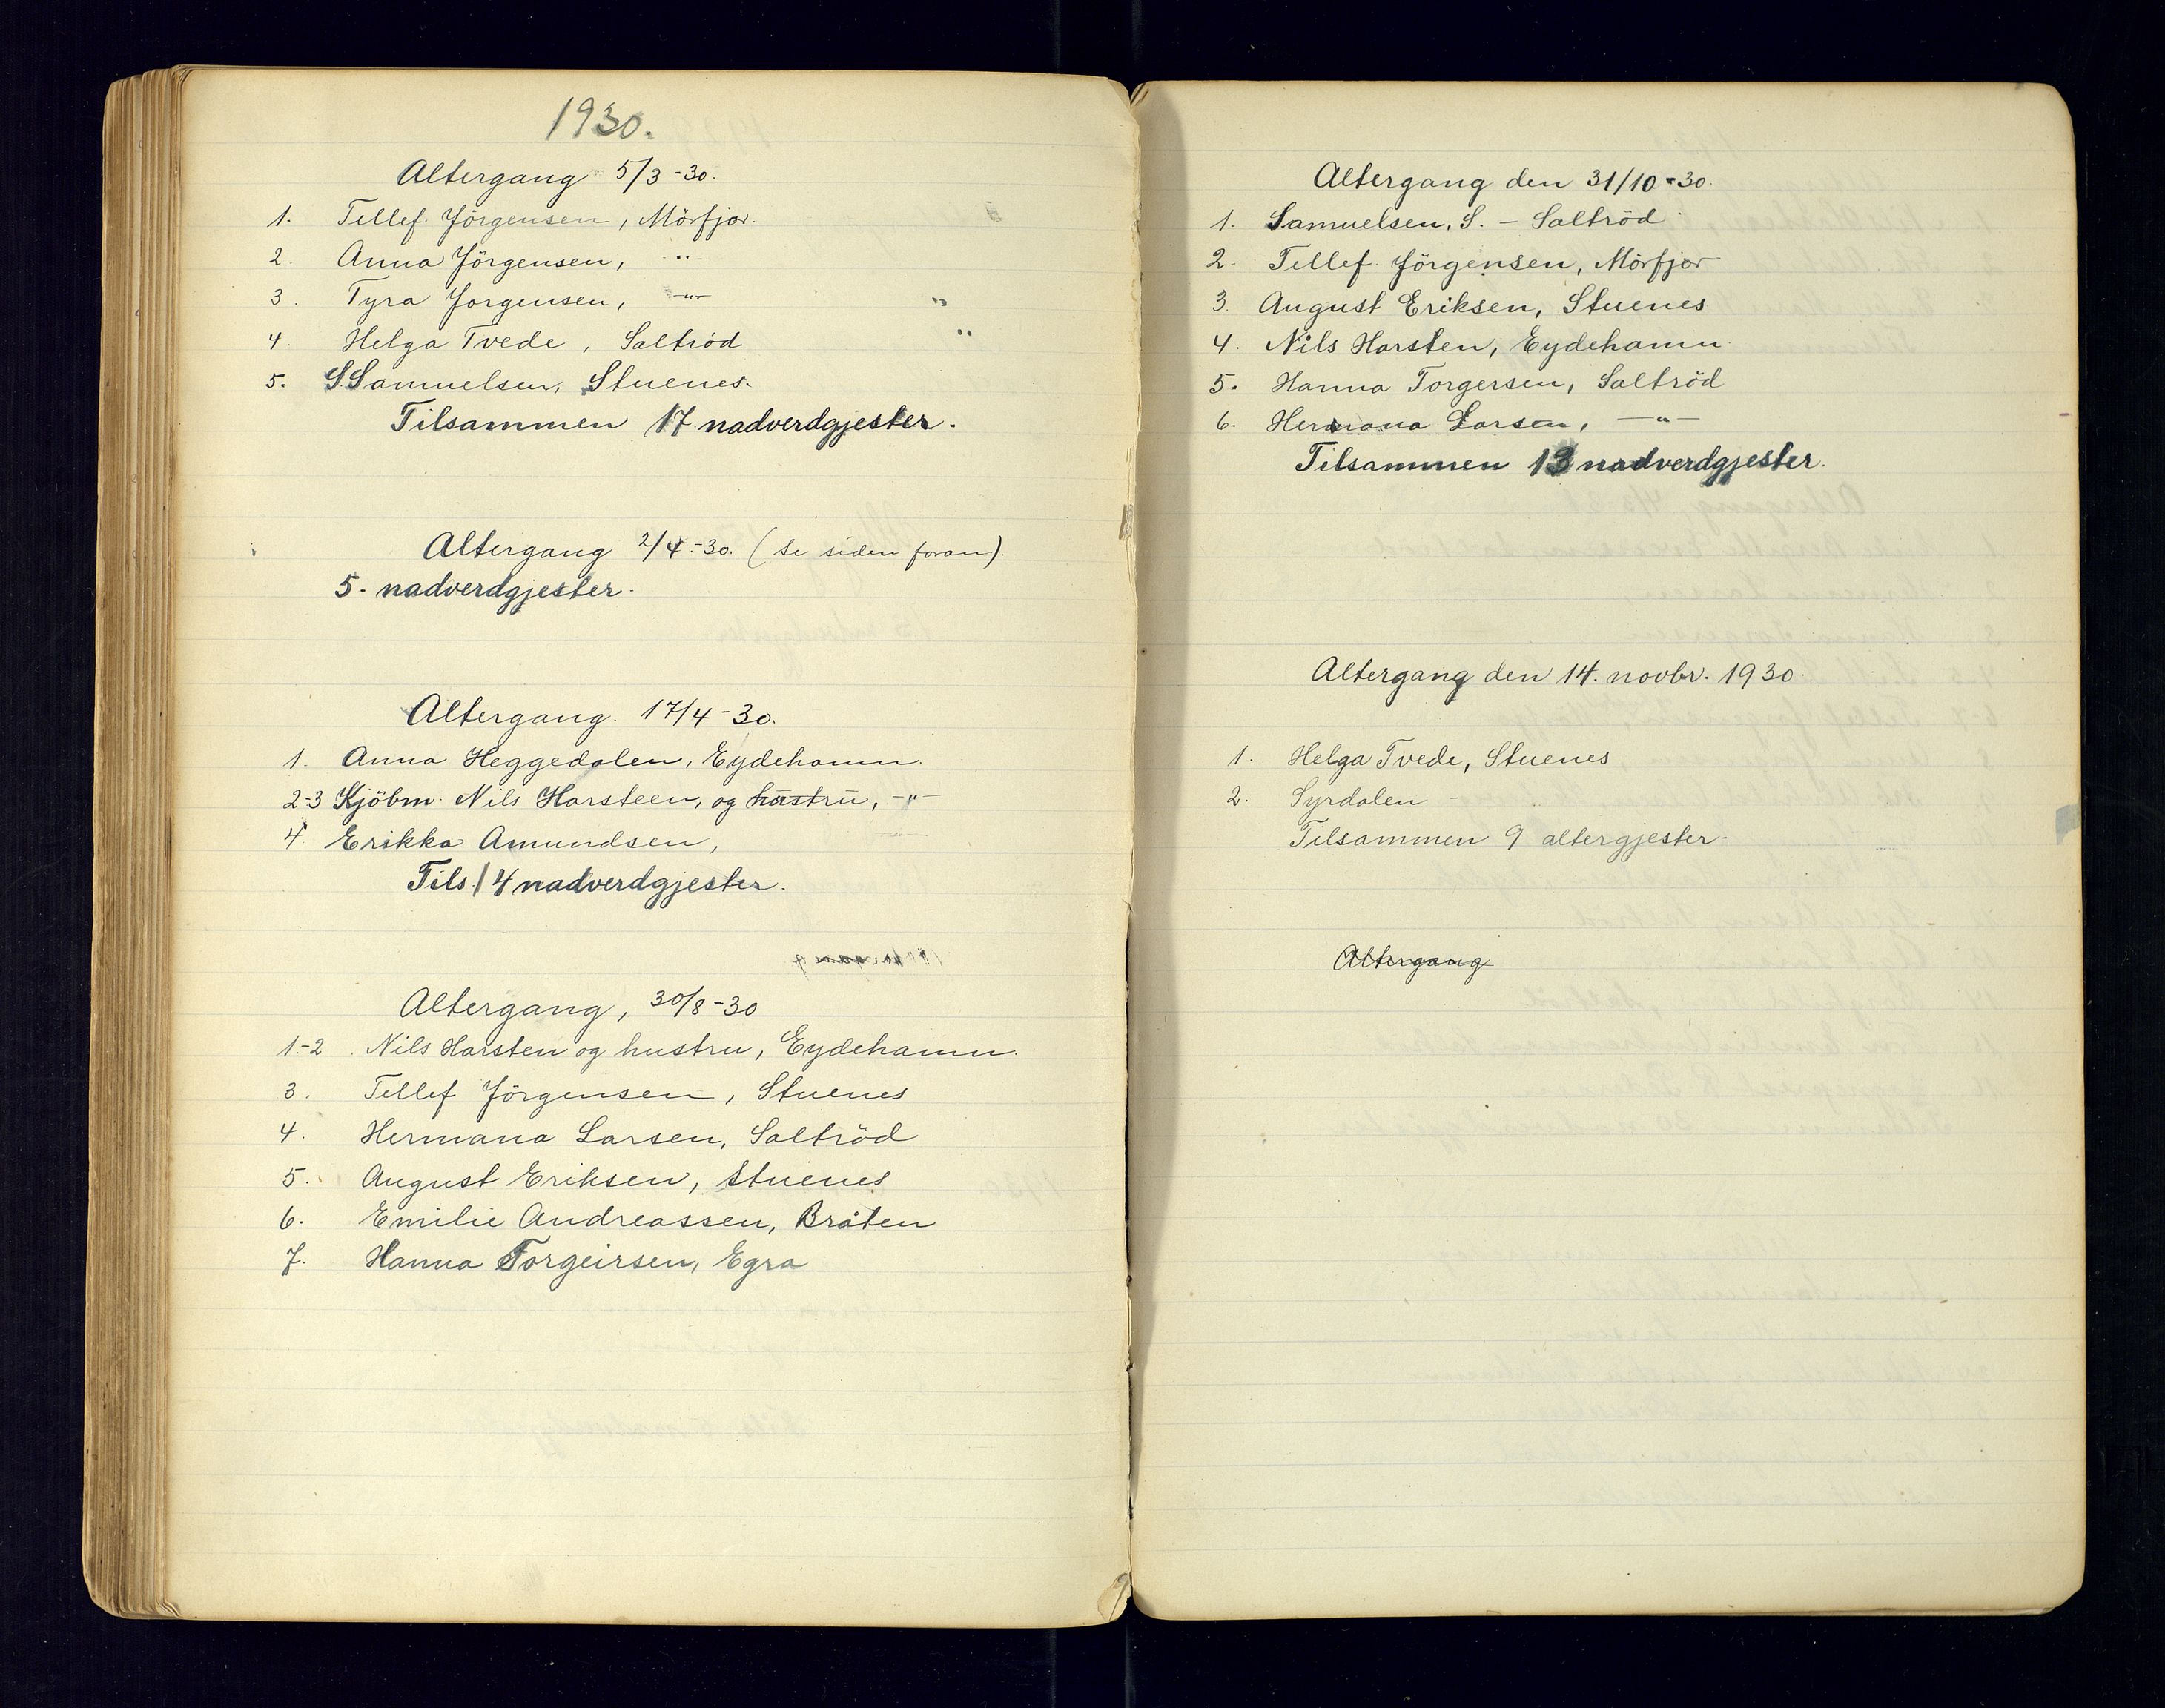 1930.
Altergang 5/3-30.
1. Tellef Jörgensen, Mörfjor.
2. Anna Jörgensen, -"-
3. Tyra Jorgensen, -"-
4. Helga Tvede, Saltröd
5. S.Samuelsen, Stuenes.
Tilsammen 17 nadverdgjester.
Altergang 2/4-30. (se siden foran).
5- nadverdgjester.
Altergang. 17/4-30.
1. Anna Heggedalen, Eydehamn.
2-3 Kjöbm. Nils Harsteen, og hustru, -"-
4. Erikka Amundsen,
Tils. 14 nadverdgjester.
Altergang, 30/8-30
1.-2. Nils Harsten og hustru, Eydehamn.
3. Tellef Jörgensen, Stuenes
4. Hermana Larsen, Saltröd
5. August Eriksen, Stuenes
6. Emilie Andreassen, Bråten
7. Hanna Torgeirsen, Egra
Altergang den 31/10-30.
1. Samuelsen, S. - Saltröd
2. Tellef Jörgensen, Mörfjor
3. August Eriksen, Stuenes
4. Nils Harsten, Eydehamn.
5. Hanna Torgersen, Saltröd
6. Hermana Larsen, -"-
Tilsammen 13 nadverdgjester.
Altergang den 14. novbr. 1930
1. Helga Tvede, Stuenes
2. Syrdalen -
Tilsammen 9 altergjester-
Altergang